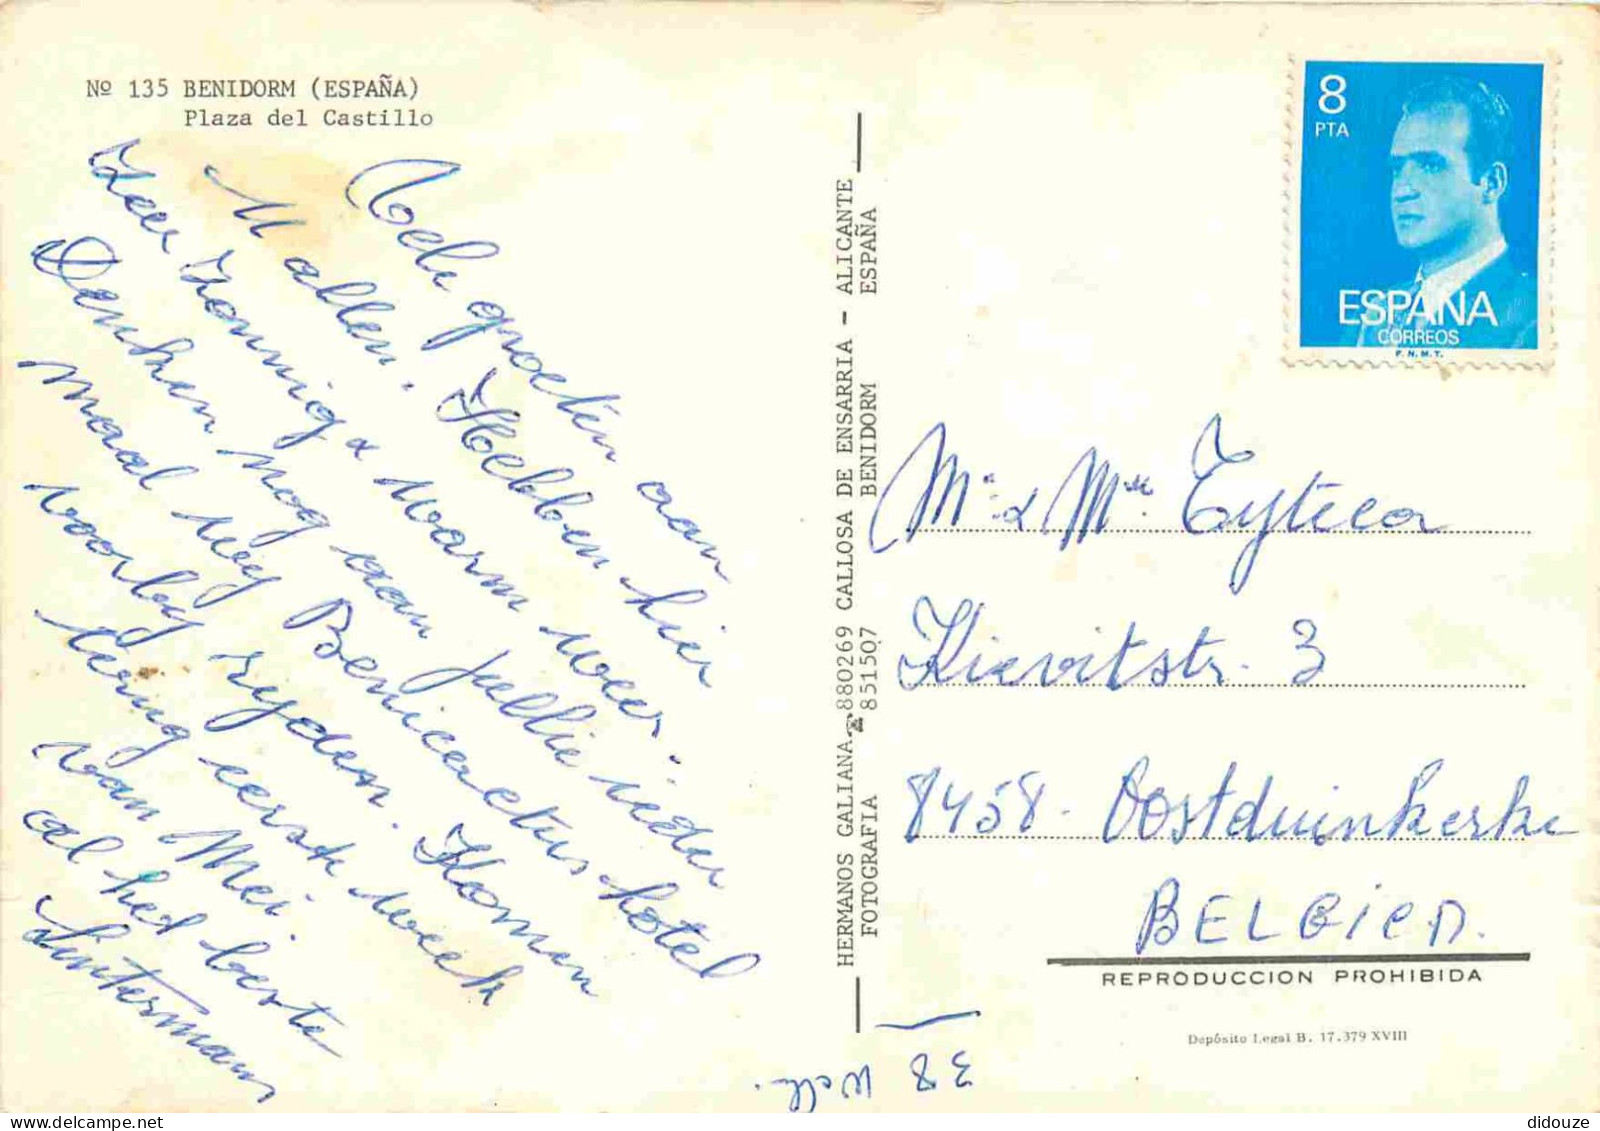 Nº 135 BENIDORM (ESPAÑA)
Plaza del Castillo
Vele groeten aan
U allen. Hebben hier
zeer zonnig & warm weer.
Denken nog aan jullie ieder
maal wij Benicactus hotel
voorby ryden. Komen
terug eerste week
van Mei.
al het beste
Linkermans
HERMANOS GALIANA 880269 CALLOSA DE ENSARRIA - ALICANTE
FOTOGRAFIA 851507 BENIDORM ESPAÑA
8
PTA
ESPAÑA
CORREOS
F.N.M.T.
Mr & Mme Tyteca
Kievitstr. 3
8458 - Oostduinkerke
BELGIEN.
REPRODUCCION PROHIBIDA
Depósito Legal B. 17.379 XVIII
38
didouze